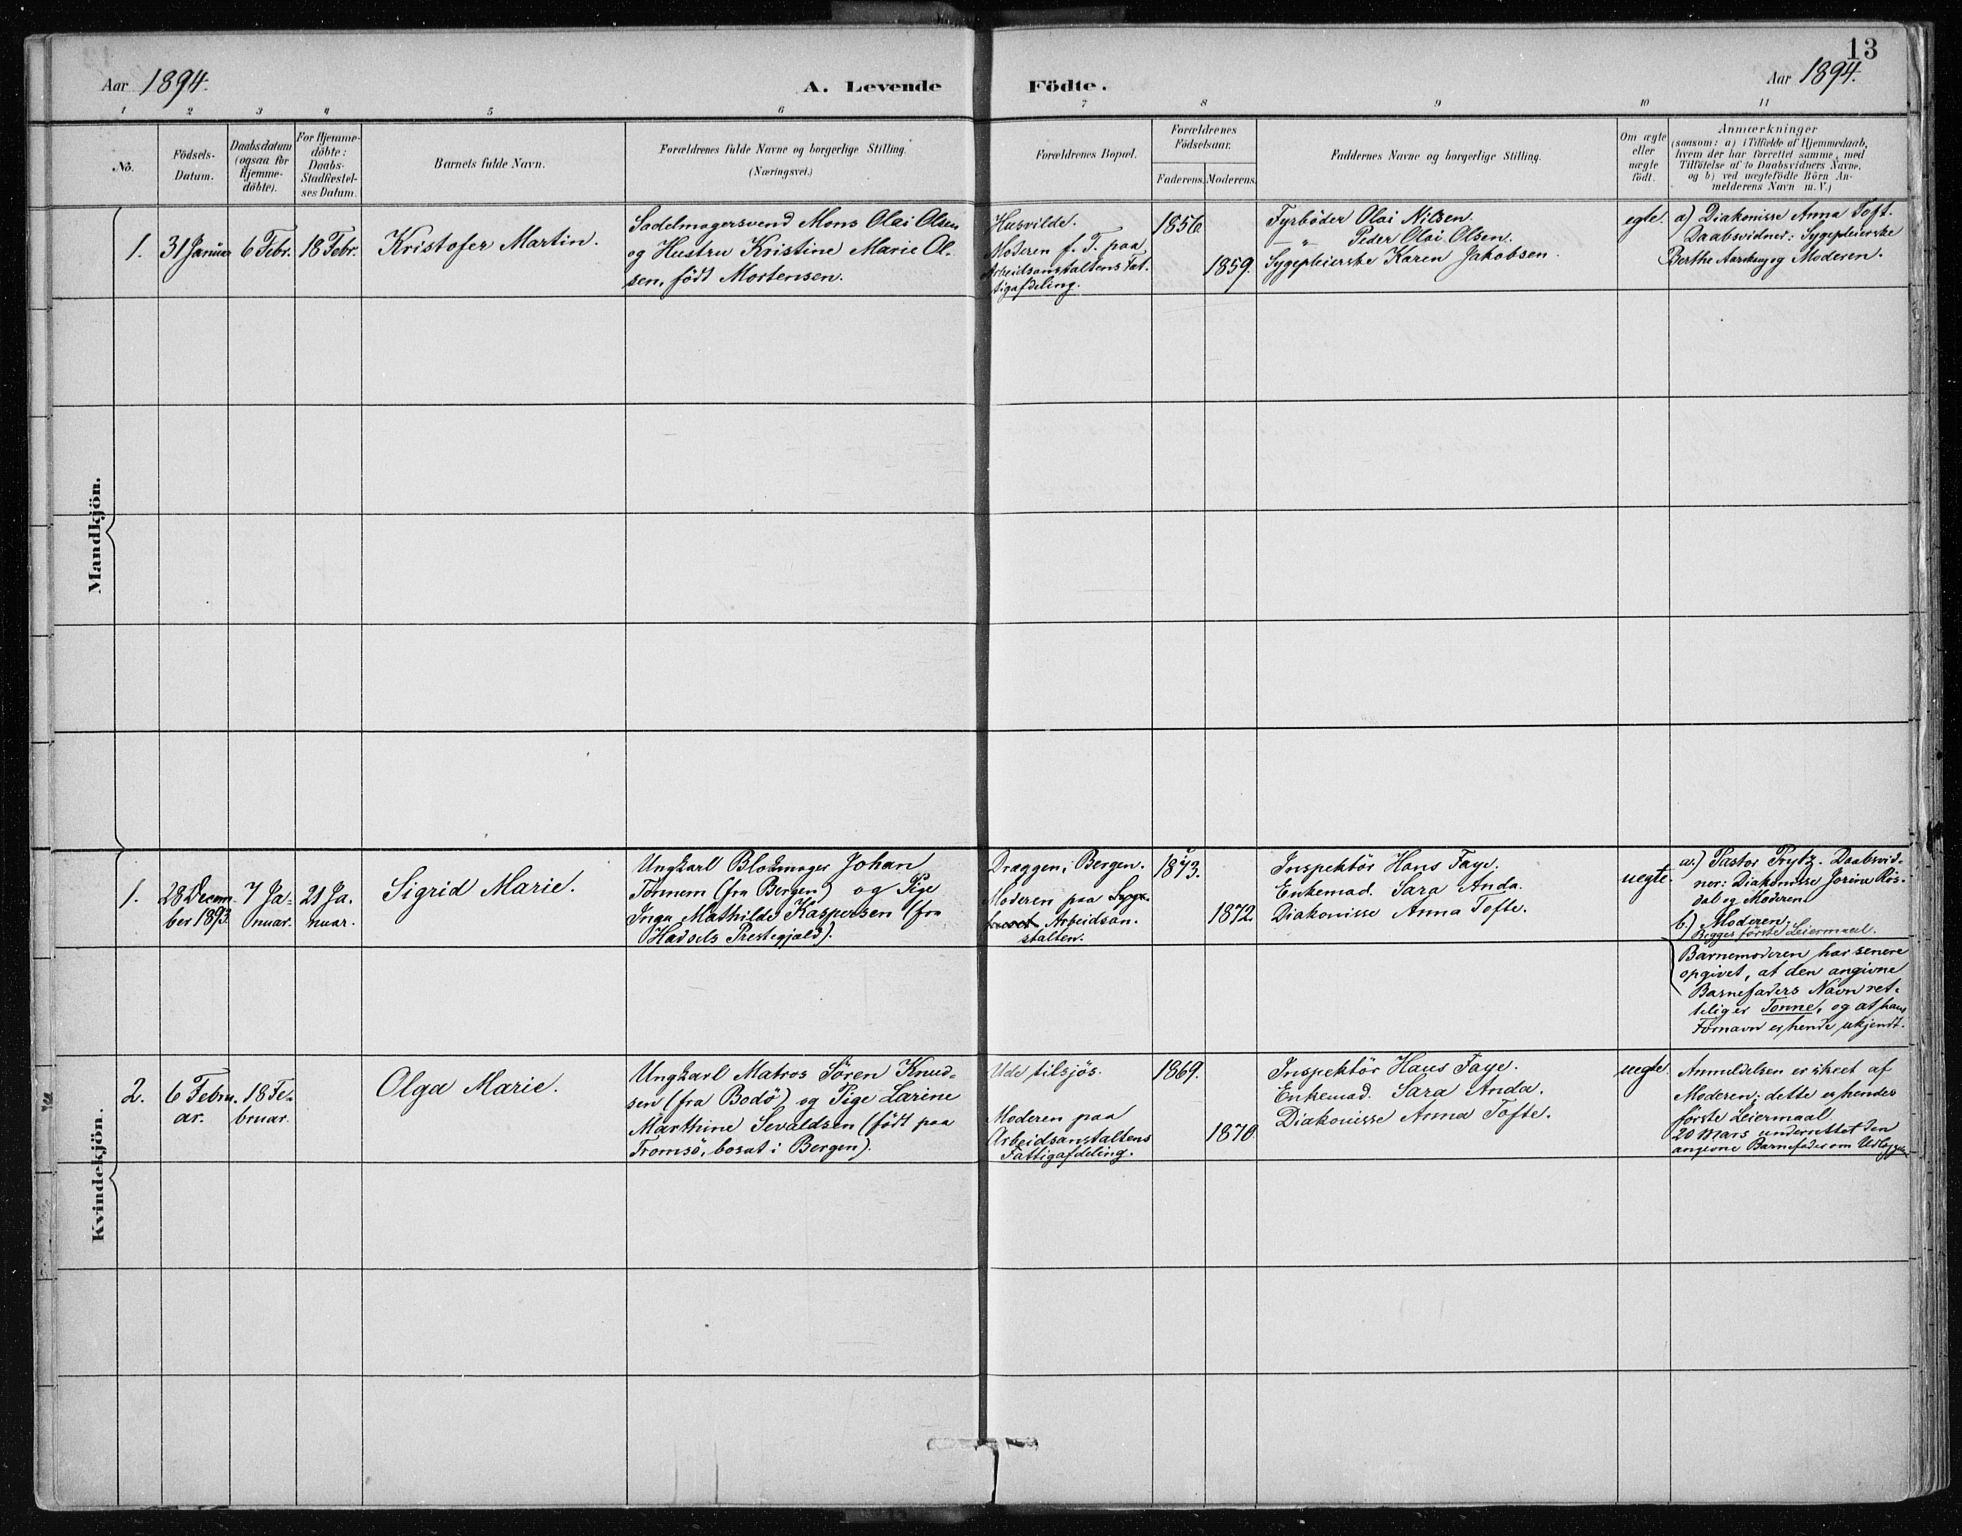 13
Aar 1894.
A. Levende Fødte.
Aar 1894.
1 2 3 4 5 6 7 8 9 10 11
No.
Födsels-
Datum.
Daabsdatum
(ogsaa for
Hjemme-
döbte).
For Hjemme-
döbte:
Daabs-
Stadfæstel-
ses Datum.
Barnets fulde Navn.
Forældrenes fulde Navne og borgerlige Stilling.
(Næringsvei.)
Forældrenes Bopæl.
Forældrenes
Födselsaar.
Faderens. Moderens.
Faddernes Navne og borgerlige Stilling.
Om ægte
eller
uægte
födt.
Anmærkninger
(saasom: a) i Tilfælde af Hjemmedaab,
hvem der har forrettet samme, med
Tilföielse af to Daabsvidners Navne,
og b) ved uægtefödte Börn An-
melderens Navn m. V.)
Mandkjön.
1.
31 Januar
6 Febr.
18 Febr.
Kristofer Martin.
Sadelmagersvend Mons Olai Olsen
og Hustru Kristine Marie Ol-
sen, född Mortensen.
Husvilde.
Moderen f. T. paa
Arbeidsanstaltens Fat-
tigafdeling.
1856.
1859.
Fyrbøder Olai Nilsen.
" Peder Olai Olsen.
Sygepleierske Karen Jakobsen.
egte.
a) Diakonisse Anna Toft.
Daabsvidner: Sygepleierske
Berthe og Moderen.
Kvindekjön.
1.
28 Decem-
ber 1893.
7 Ja-
nuar.
21 Ja-
nuar.
Sigrid Marie.
Ungkarl Blokmager Johan
(fra Bergen) og Pige
Inga Mathilde Kaspersen (fra
Hadsels Prestegjæld).
Dræggen, Bergen.
Moderen paa
Arbeidsan-
stalten.
1873.
1872.
Inspektör Hans Faye.
Enkemad. Sara Anda.
Diakonisse Anna Tofte.
uegte.
a.) Pastor Prytz. Daabsvid-
ner: Diakonisse Jorina Rös-
dal og Moderen
b.) Moderen.
Begges første Leiermaal.
Barnemoderen har senere
opgivet, at den angivne
Barnefaders Navn ret-
telig er Tonne, og at hans
Fornavn er hende ukjendt.
2.
6 Febru-
ar.
18 Fe-
bruar.
Olga Marie.
Ungkarl Matros Sören Knud-
sen (fra Bodö) og Pige Larine
Marthine Sevaldsen (født paa
Tromsö, bosat i Bergen).
Ude tilsjös.
Moderen paa
Arbeidsanstaltens
Fattigafdeling.
1869.
1870
Inspektör Hans Faye.
Enkemad. Sara Anda.
Diakonisse Anna Tofte.
uegte.
Anmeldelsen er sikret af
Moderen; dette er hendes
første Leiermaal
20 Mars underrettet den
angivne Barnefader om